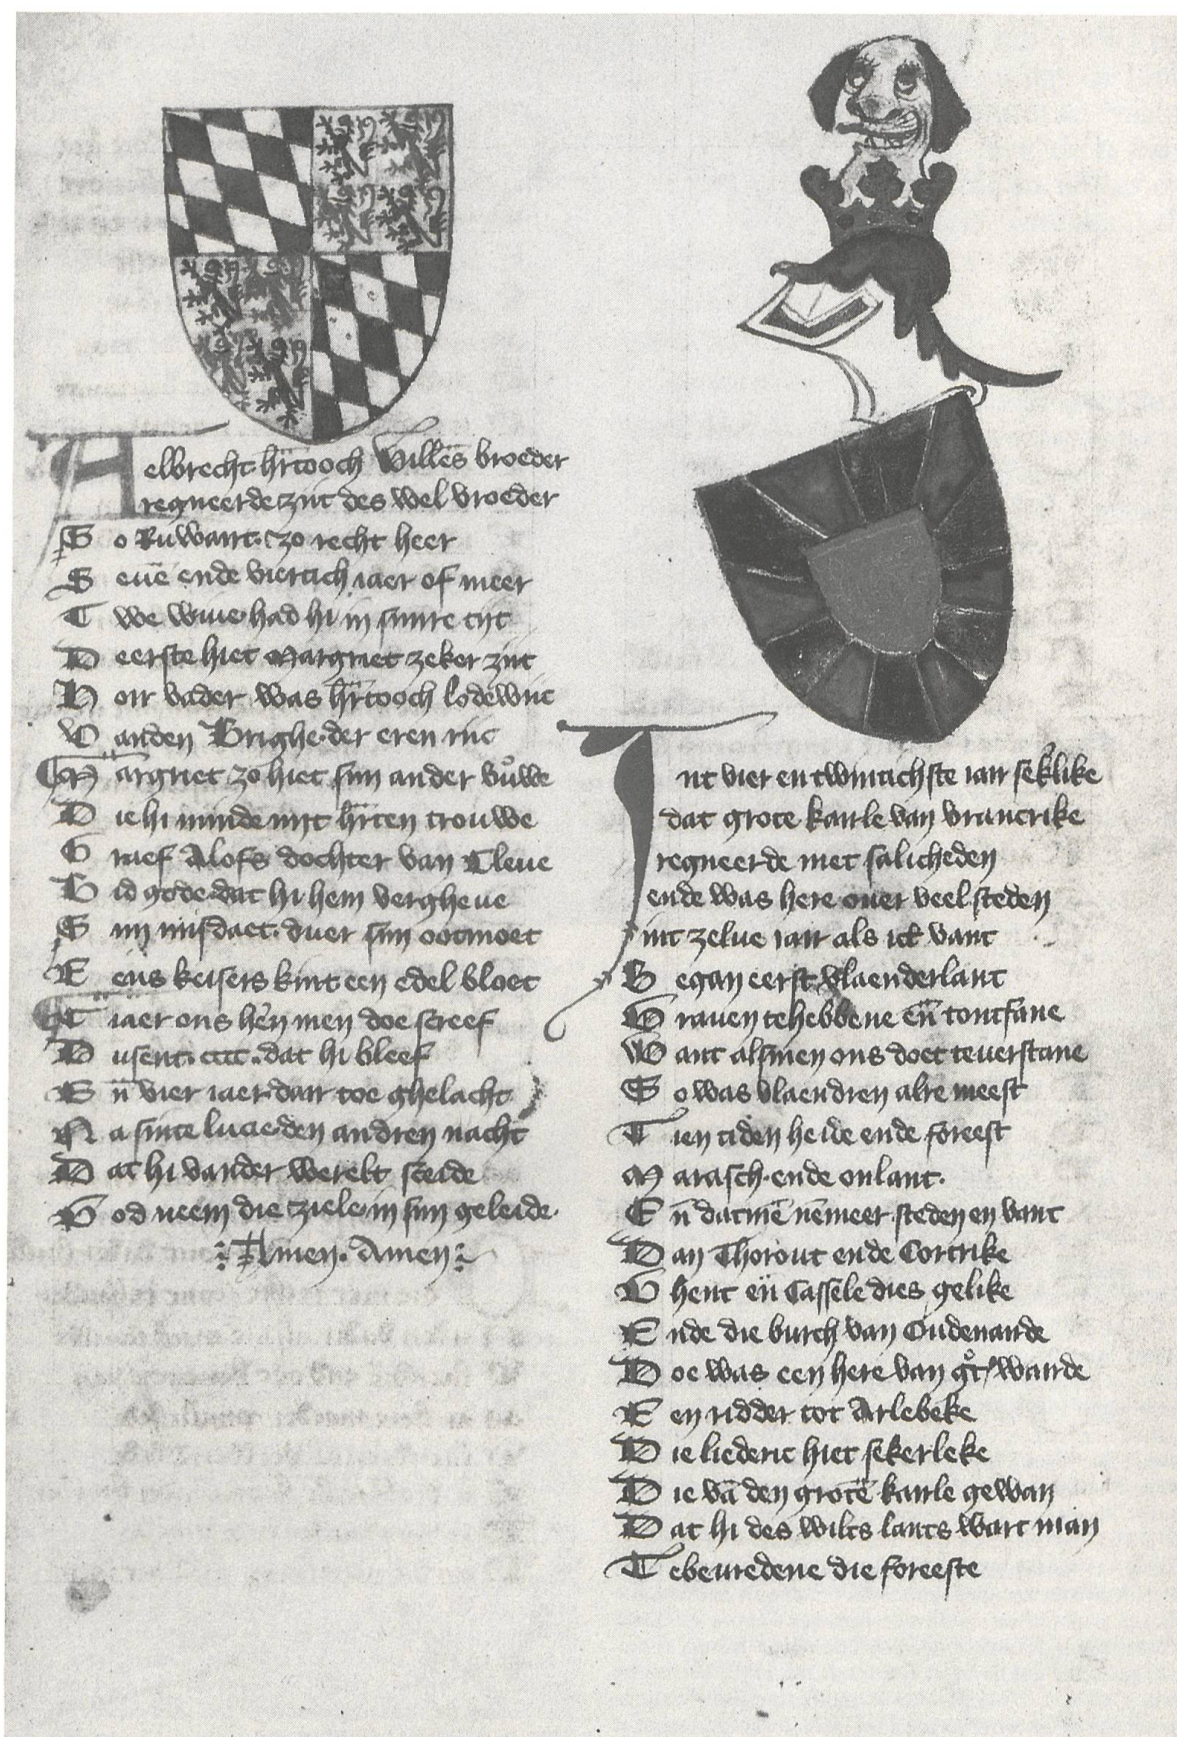 Aelbrecht hr̄tooch Willēs broeder
regneerde zint des wel vroeder
So Ruwaert. zo recht heer
Seuē ende viertich iaer of meer
Twe wiue had hi in sinre tijt
Deerste hiet Margriet zeker zijt
Hoir vader was hr̄tooch lodewijc
Vanden Brighe. der eren rijc
Margriet zo hiet sijn ander vrouwe
Die hi minde mit hr̄ten trouwe
Graef Alofs dochter van Cleue
Bid gode dat hi hem vergheue
Sijn misdaet. duer sijn ootmoet
Eens keisers kint een edel bloet
Tiaer ons hē̄n men doe screef
Dusent. cccc. dat hi bleef
En̄ vier iaer daer toe ghelacht
Na sinte lucie den andren nacht
Dat hi vander werelt sceide
God neem die ziele in sijn geleide.
Amen. Amen
Int vier en twintichste iaer seklike
dat grote kaerle van vrancrike
regneerde met salicheden
ende was here ouer veel steden
int zelue iaer als ick vant
Began eerst vlaenderlant
Grauen te hebbene en̄ tontfane
Want alsmen ons doet te uerstane
So was vlaendren alre meest
Tien tiden heide ende foreest
Marasch. ende onlant.
En̄ datmē nēmeer steden en vant
Dan Thorout ende Cortrike
Ghent en̄ Cassele dies gelike
Ende die burch van Oudenarde
Doe was een here van gͦt waerde
Een ridder tot Arlebeke
Die liederic hiet sekerleke
Die vā den grotē kaerle gewan
Dat hi des wilts lants wart man
Te beuredene die foreeste